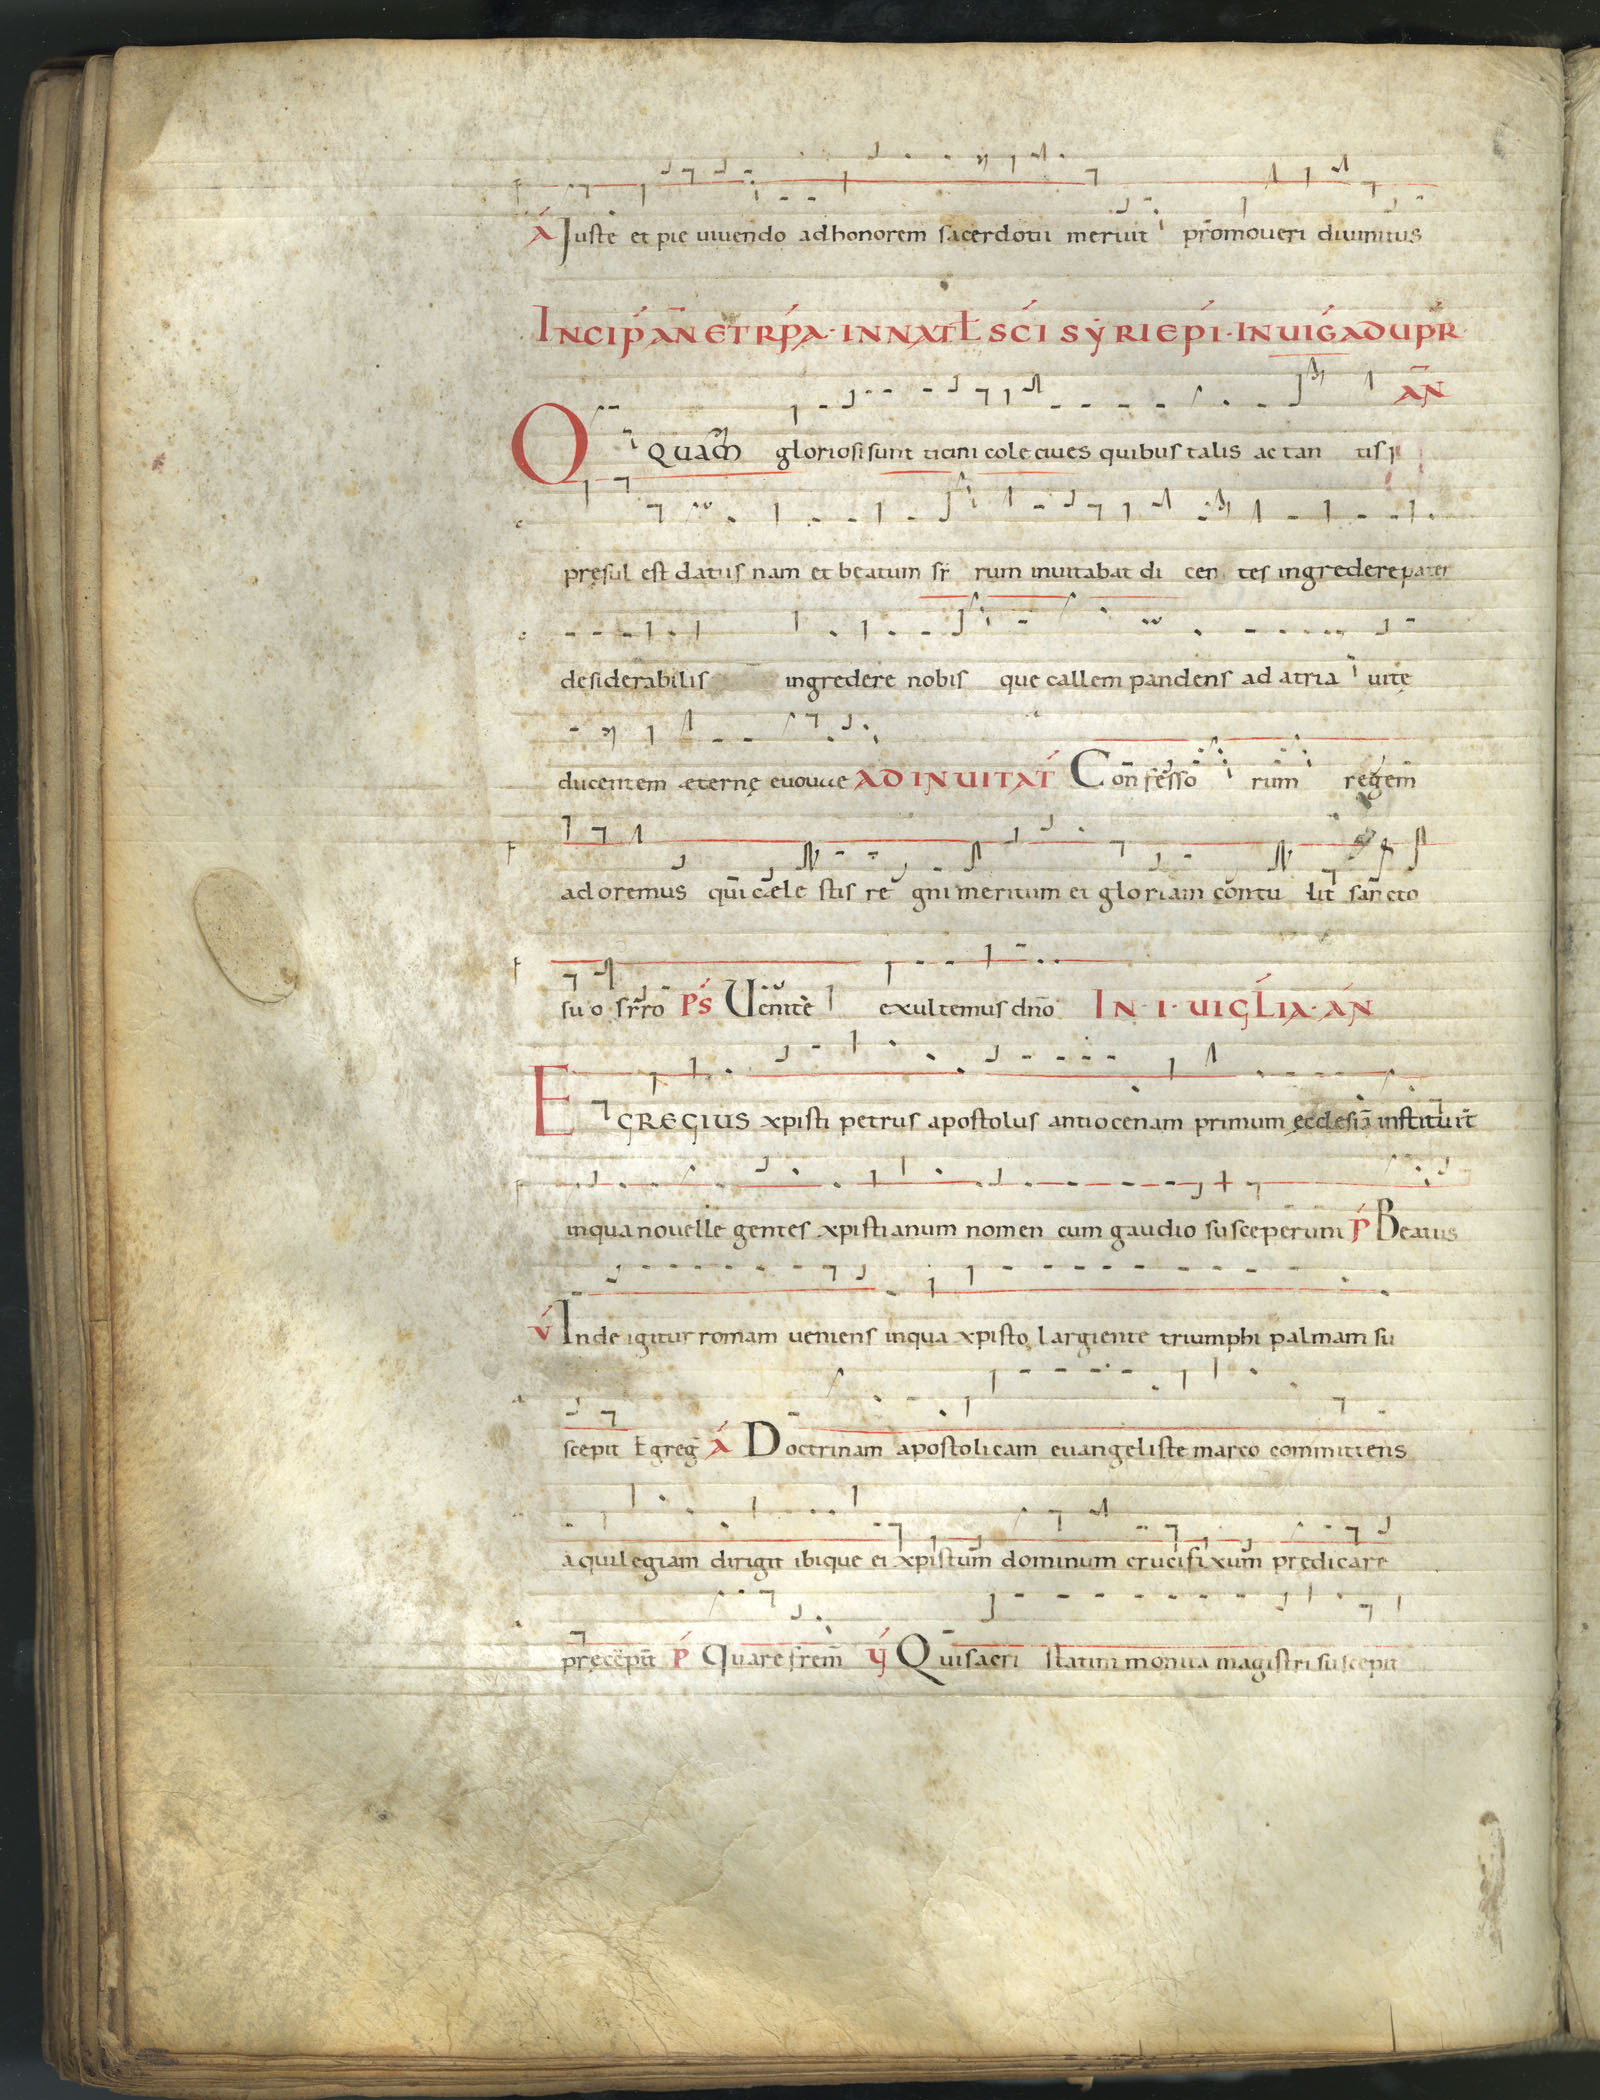 A Iuste et pie uiuendo ad honorem sacerdotii meruit promoueri diuinitus
INCIP AN ET RPA · IN NATL SCI SYRI EPI · IN UIG AD UPR
AN
O QUAM gloriosi sunt ticini cole ciues quibus talis ac tan tis
pręsul est datus nam et beatum sr rum inuitabat di cen tes ingredere pater
desiderabilis ingredere nobis que callem pandens ad atria uitę
ducentem æternę euouae AD INUITAT Confesso rum regem
adoremus qui cæle stis re gni meritum et gloriam contu lit sancto
suo srro PS Uenite exultemus dno IN · I · UIGLIA · AN
EGREGIUS xpisti petrus apostolus antiocenam primum ęcclesiā instituit
in qua nouelle gentes xpistianum nomen cum gaudio susceperunt P Beatus
V Inde igitur romam ueniens in qua xpisto largiente triumphi palmam su
scepit Egreg A Doctrinam apostolicam euangeliste marco committens
aquilegiam dirigit ibique ei xpistum dominum crucifixum predicare
pręcepit P Quare frem V Qui sacri statim monita magistri suscepit